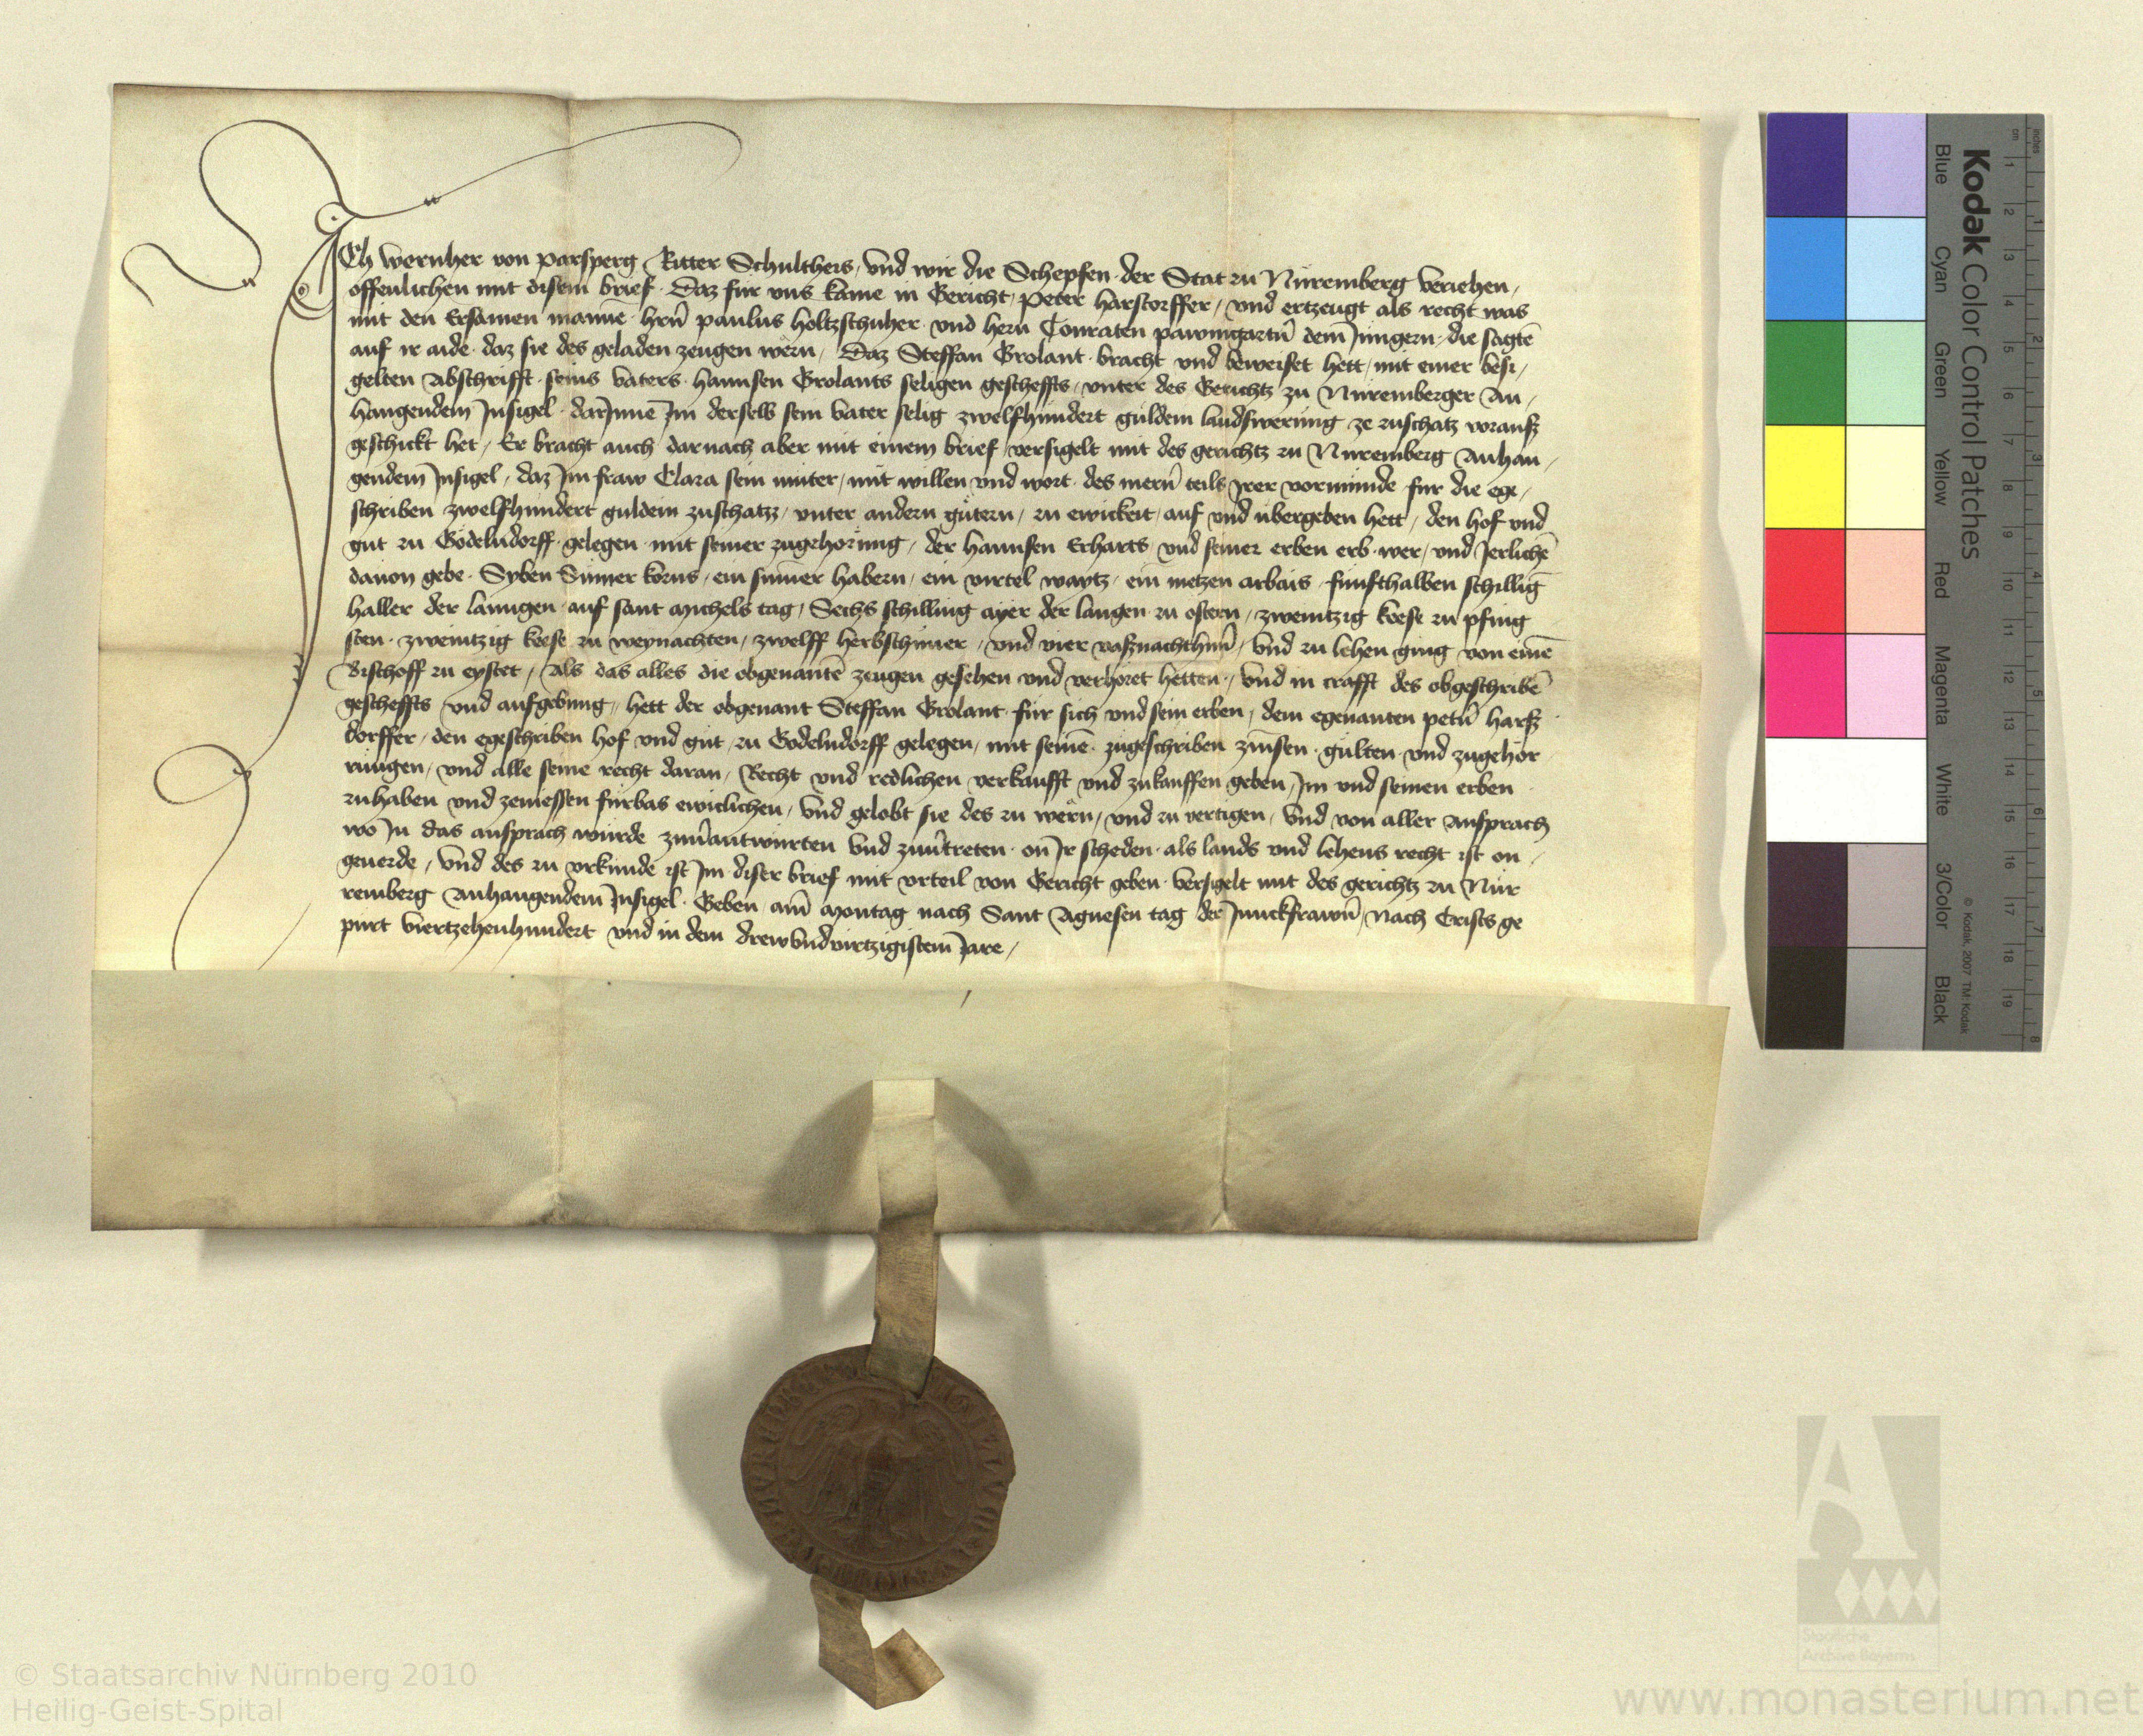 ICh wernher von parsperg Ritter Schultheis, vnd wir die Schepfen der Stat zu Nüremberg veriehen,
offenlichen mit disem brief. Daz für vns kame in Gericht, Peter harstorffer, vnd ertzeugt als recht was
mit den Ersamen manne hrn̄ paulus holtzschuher vnd hern Conraten pawmgartn̄ dem Jungern, die sagtē
auf ir aide, daz sie des geladen zeugen wern, Daz Steffan Grolant bracht vnd beweiset hett, mit einer besi,
gelten Abschrifft seins Vaters hannsen Grolants seligen gescheffts, vnter des Gerichtz zu Nüremberger An,
hangendem Insigel, darInne Im derselb sein Vater selig zwelfhundert guldein landswerung ze zuschatz vorausz
geschickt het, Er bracht auch darnach aber mit einem brief, versigelt mit des gerichtz zu Nuremberg Anhan,
gendem Insigel, daz Im fraw Clara sein muter, mit willen vnd wort des mern̄ teils Irer vormunde für die ege,
schriben zwelfhundert guldein zuschatzz, vnter andern gütern, zu ewickeit, auf vnd übergeben hett, den hof vnd
gut zu Gödelndorff gelegen mit seiner zugehörung, der hannsen Erharts vnd seiner erben erb wer, vnd Jerlichē
dauon gebe. Syben Sümer korns, ein sümer habern, ein virtel waytz, ein metzen arbais, fünfthalben schilliḡ
haller der lanngen auf sant Michels tag, Sechs schilling ayer der langen zu ostern, zweintzig keese zu pfing
sten, zweintzig keese zu weynachten, zwelff herbsthüner, vnd vier vasznachthün̄, vnd zu lehen ging von einē
Bischoff zu eystet, Als das alles die obgenantē zeugen gesehen vnd verhöret hetten, vnd in crafft des obgeschribē
gescheffts vnd aufgebung, hett der obgenant Steffan Grolant für sich vnd sein erben, dem egenanten petn̄ harsz
dorffer, den egeschriben hof vnd gut, zu Godelndorff gelegen, mit seinē zugeschriben zinsen, gülten vnd zugehör
rungen, vnd alle seine recht daran, Recht vnd redlichen verkaufft vnd zukauffen geben, Im vnd seinen erben
zuhaben vnd zeniessen fürbas ewiclichen, vnd gelobt sie des zu wern, vnd zu vertigen, vnd von aller Ansprach
wo In das ansprach würde zuuͦantwürten vnd zuuͦtreten on Ir scheden als lands vnd lehens recht ist on
geuerde, Vnd des zu vrkunde ist Im diser brief mit vrteil von Gericht geben Versigelt mit des gerichtz zu Nür
remberg Anhangendem Insigel. Geben am̄ Montag nach Sant Agnesen tag der Junckfrawn̄, Nach Crists ge
purt Viertzehenhundert vnd in dem drewvndvirtzigistem Jare,
Kodak Color Control Patches
Blue Cyan Green Yellow Red Magenta White 3/Color Black
© Kodak, 2007 TM: Kodak
cm 1 2 3 4 5 6 7 8 9 10 11 12 13 14 15 16 17 18 19
inches 1 2 3 4 5 6 7 8
Staatliche
Archive Bayerns
© Staatsarchiv Nürnberg 2010
Heilig-Geist-Spital
www.monasterium.net